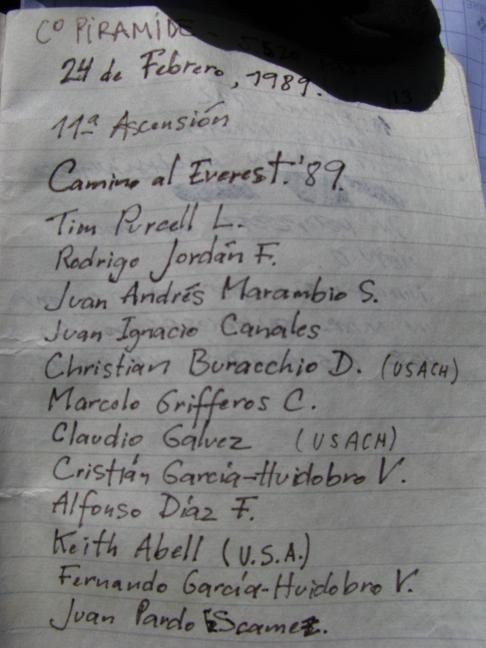 Cº PIRAMIDE -
24 de Febrero, 1989.
11ª Ascensión
Camino al Everest.'89.
Tim Purcell L.
Rodrigo Jordán F.
Juan Andrés Marambio S.
Juan Ignacio Canales
Christian Buracchio D. (USACH)
Marcolo Grifferos C.
Claudio Galvez (USACH)
Cristián García-Huidobro V.
Alfonso Díaz F.
Keith Abell (U.S.A.)
Fernando García-Huidobro V.
Juan Pardo Escamez.